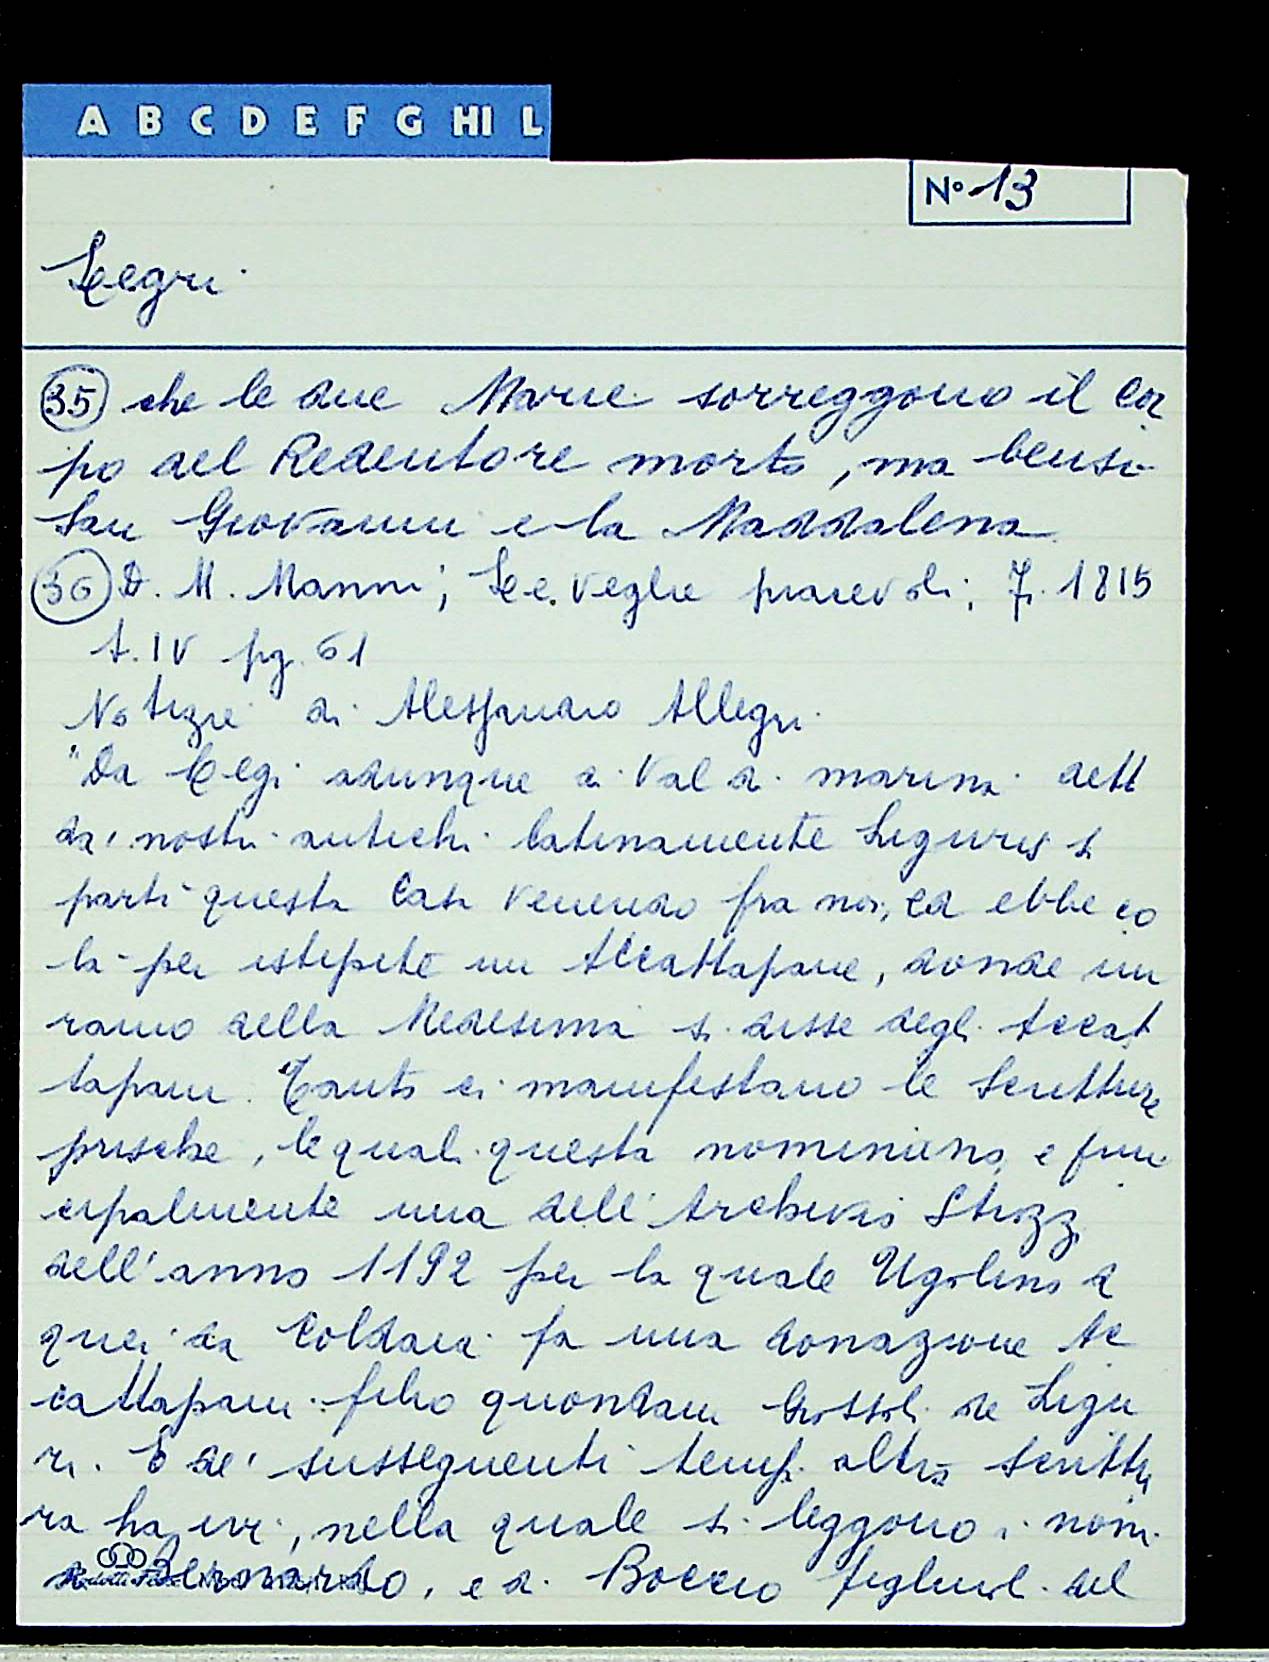 A B C D E F G HI L
N° 13
Legri
35 che le due Marie sorreggono il cor
po del Redentore morto, ma bensì
San Giovanni e la Maddalena
36 D. M. Manni; Le veglie piacevoli; F. 1815
t. IV pg. 61
Notizie di Alessandro Allegri
"Da Legi adunque di Val di marina dett
da' nostri antichi latinamente Liguris si
partì questa Casa venendo fra noi, ed ebbe co
là per istipite un Accattapane, donde un
ramo della Medesima si disse degli Accat
tapani. Tanto ci manifestano le Scritture
prische, le quali questa nominano, e prin
cipalmente una dell'Archivio Strozzi
dell'anno 1192 per la quale Ugolino di
quei da Coldaia fa una donazione Ac
cattapani filio quondam Grossoli de Ligu
ri. E de' susseguenti tempi altra scrittu
ra ha ivi, nella quale si leggono i nomi
di Bernardo, e di Boccio figliuoli del